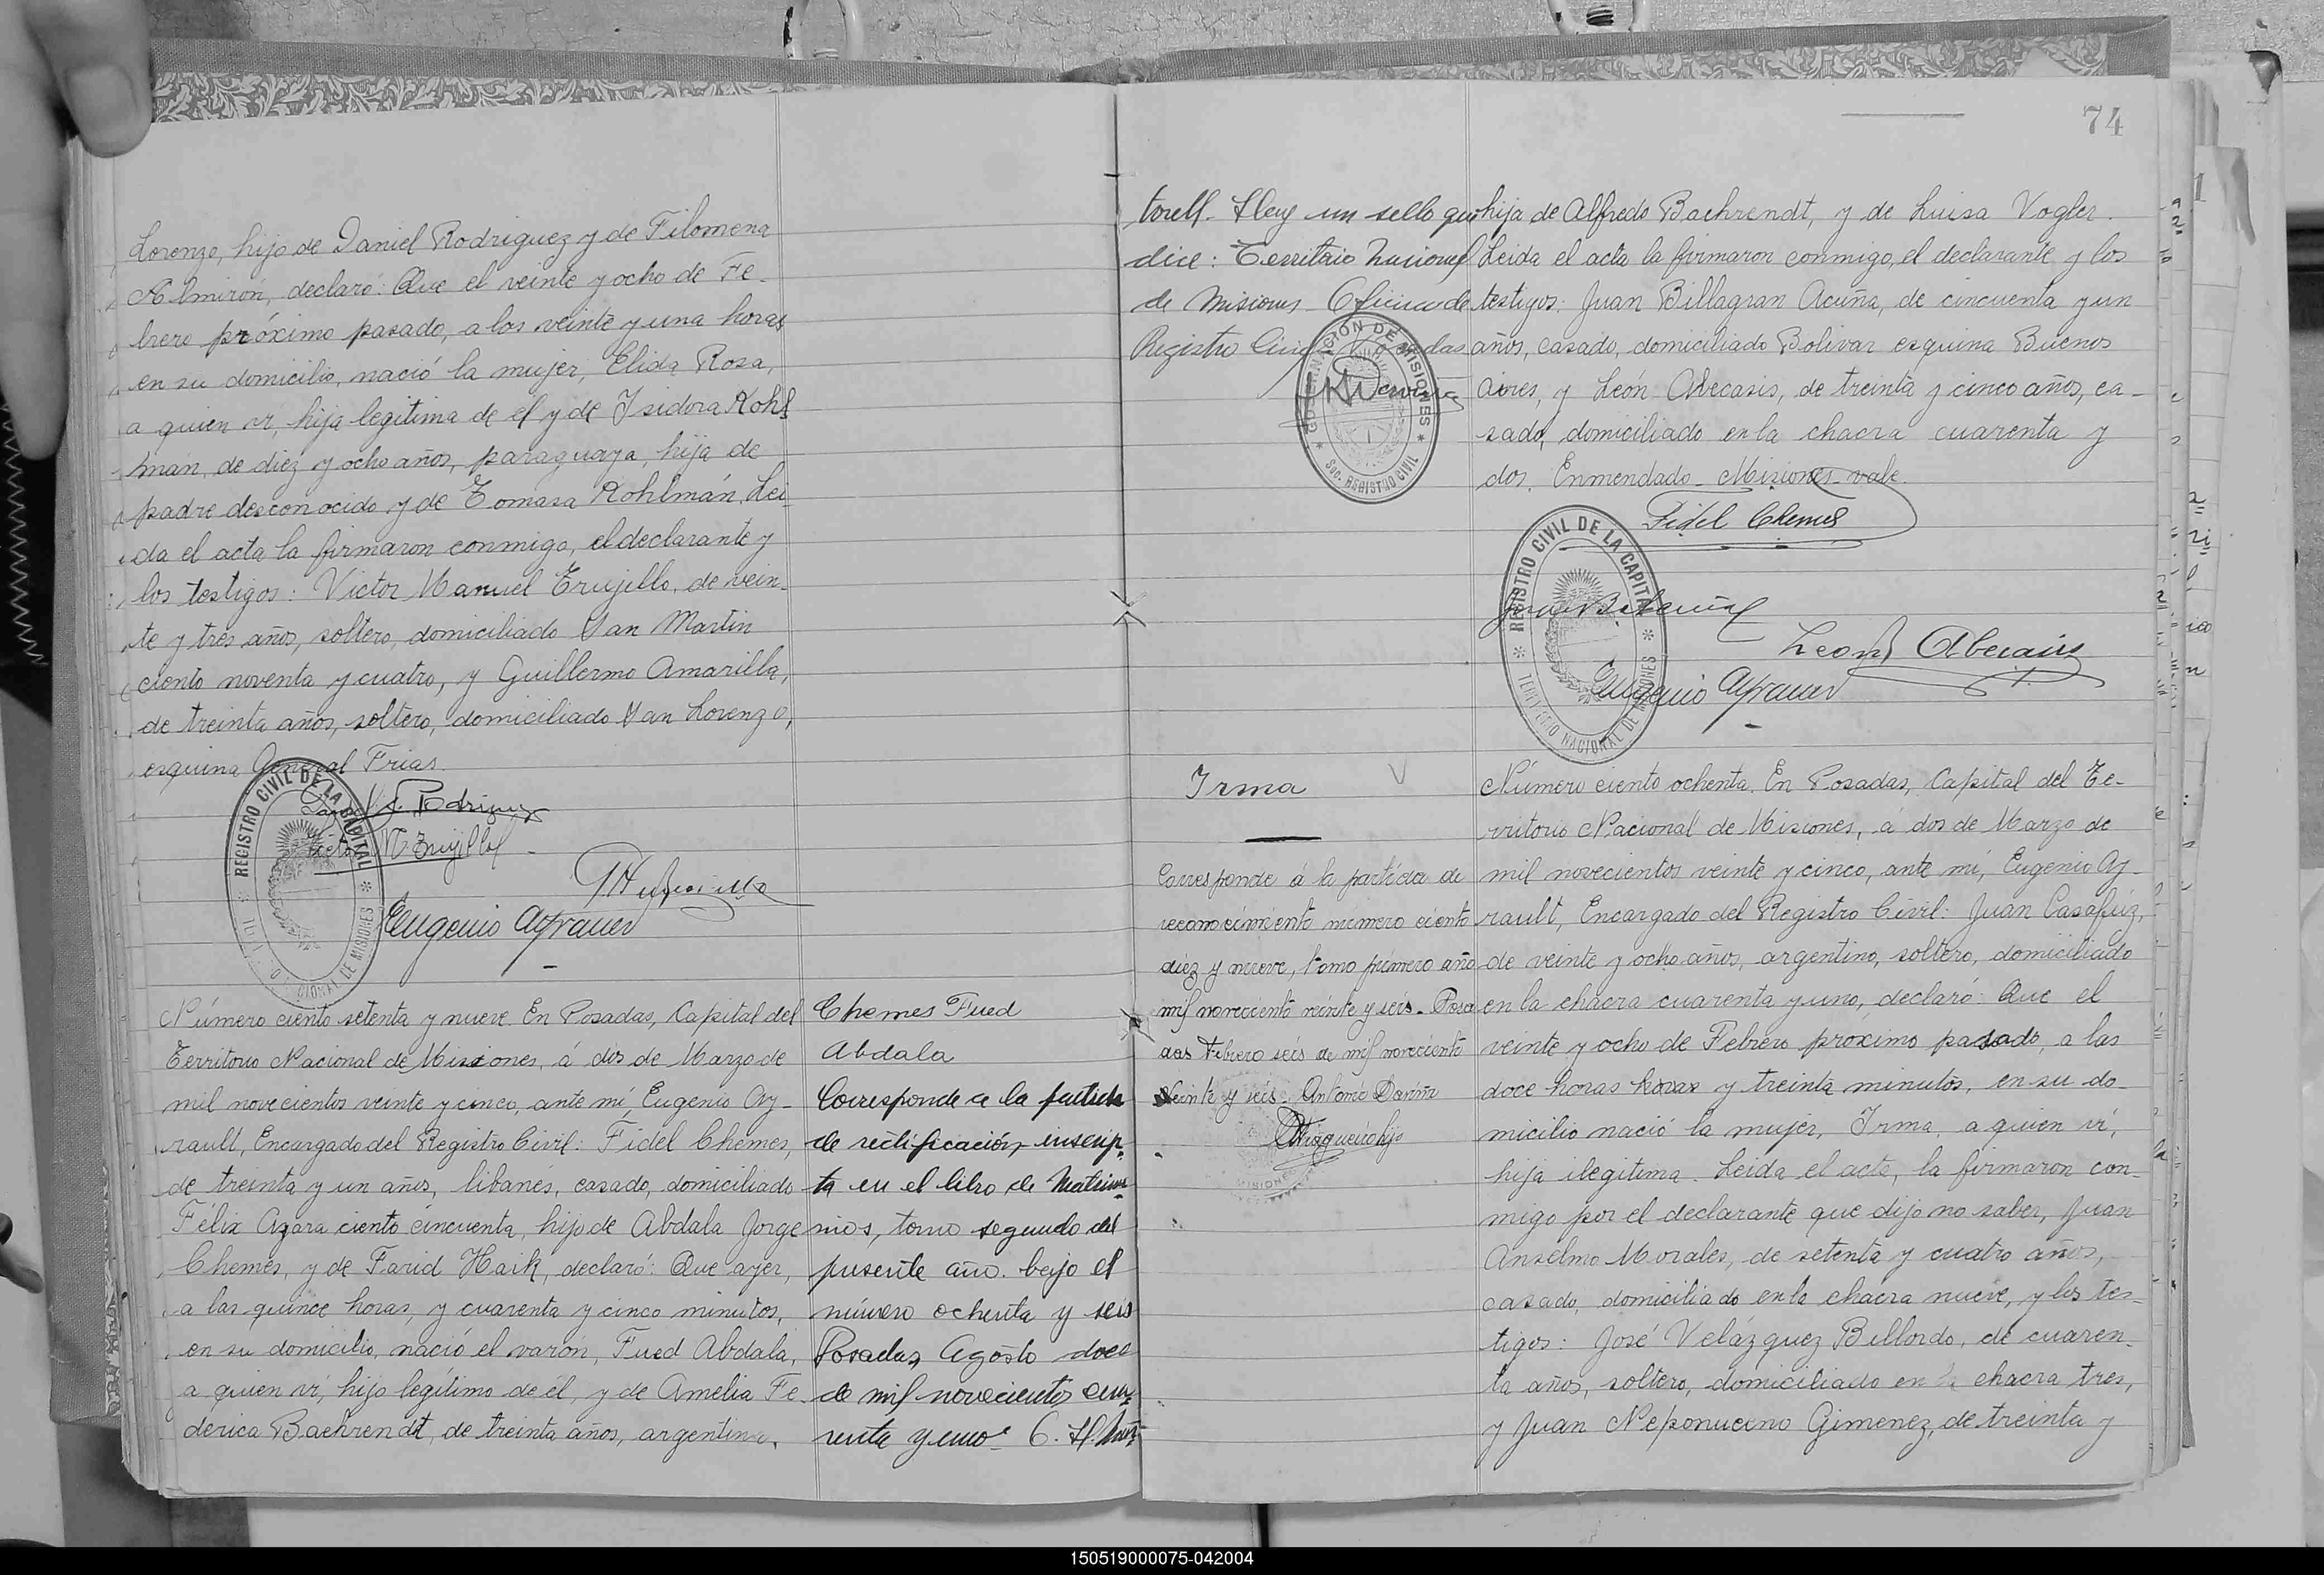 Lorenzo, hijo de Daniel Rodriguez y de Filomena
Almirón, declaró: Que el veinte y ocho de Fe-
brero próximo pasado, a los veinte y una horas
en su domicilio, nació la mujer, Elida Rosa,
a quien ví, hija legítima de él y de Isidora Kohl
mán, de diez y ocho años, paraguaya, hija de
padre desconocido y de Tomasa Kohlmán. Lei-
da el acta la firmaron conmigo, el declarante y
los testigos: Victor Manuel Trujillo, de vein-
te y tres años, soltero, domiciliado San Martin
ciento noventa y cuatro, y Guillermo Amarilla,
de treinta años, soltero, domiciliado San Lorenzo,
esquina General Frias.
Rodriguez
Victor M Trujillo
Eugenio Ayrault
REGISTRO CIVIL DE LA CAPITAL
NACIONAL DE MISIONES
Número ciento setenta y nueve. En Posadas, Capital del
Territorio Nacional de Misiones, á dos de Marzo de
mil novecientos veinte y cinco, ante mí, Eugenio Ay-
rault, Encargado del Registro Civil: Fidel Chemes,
de treinta y un años, libanés, casado, domiciliado
Félix Azara ciento cincuenta, hijo de Abdala Jorge
Chemes, y de Farid Haik, declaró: Que ayer,
a las quince horas, y cuarenta y cinco minutos,
en su domicilio, nació el varón, Fued Abdala,
a quien ví, hijo legítimo de él, y de Amelia Fe-
derica Baehrendt, de treinta años, argentina,
Chemes Fued
Abdala
Corresponde a la partida
de rectificación, inscrip-
ta en el libro de Matrimo-
nios, tomo segundo del
presente año. bajo el
número ochenta y seis
Posadas, Agosto doce
de mil novecientos cua-
renta y uno
74
torell. Hay un sello que
dice: Territorio Nacional
de Misiones Oficina de
Registro Civil Posadas
GOBERNACIÓN DE MISIONES
Sec. REGISTRO CIVIL
hija de Alfredo Baehrendt, y de Luisa Vogler.
Leida el acta la firmaron conmigo, el declarante y los
testigos: Juan Billagran Acuña, de cincuenta y un
años, casado, domiciliado Bolivar esquina Buenos
Aires, y León Abecasis, de treinta y cinco años, ca-
sado, domiciliado en la chacra cuarenta y
dos. Enmendado - Misiones - vale.
Fidel Chemes
Juan B. Acuña
León Abecasis
Eugenio Ayrault
REGISTRO CIVIL DE LA CAPITAL
TERRITORIO NACIONAL DE MISIONES
Irma
Corresponde á la partida de
reconocimiento número ciento
diez y nueve, tomo primero año
mil novecientos veinte y seis. Posa
das Febrero seis de mil novecientos
veinte y seis.
MISIONES
Número ciento ochenta. En Posadas, Capital del Te-
rritorio Nacional de Misiones, á dos de Marzo de
mil novecientos veinte y cinco, ante mí, Eugenio Ay-
rault, Encargado del Registro Civil: Juan Casafúz,
de veinte y ocho años, argentino, soltero, domiciliado
en la chacra cuarenta y uno, declaró: Que el
veinte y ocho de Febrero proximo pasado, a las
doce horas horas y treinta minutos, en su do-
micilio nació la mujer, Irma, a quien ví,
hija ilegitima. Leida el acta, la firmaron con-
migo por el declarante que dijo no saber, Juan
Anselmo Morales, de setenta y cuatro años,
casado, domiciliado en la chacra nueve, y los tes-
tigos: José Velázquez Billordo, de cuaren-
ta años, soltero, domiciliado en la chacra tres,
y Juan Neponuceno Gimenez, de treinta y
150519000075-042004